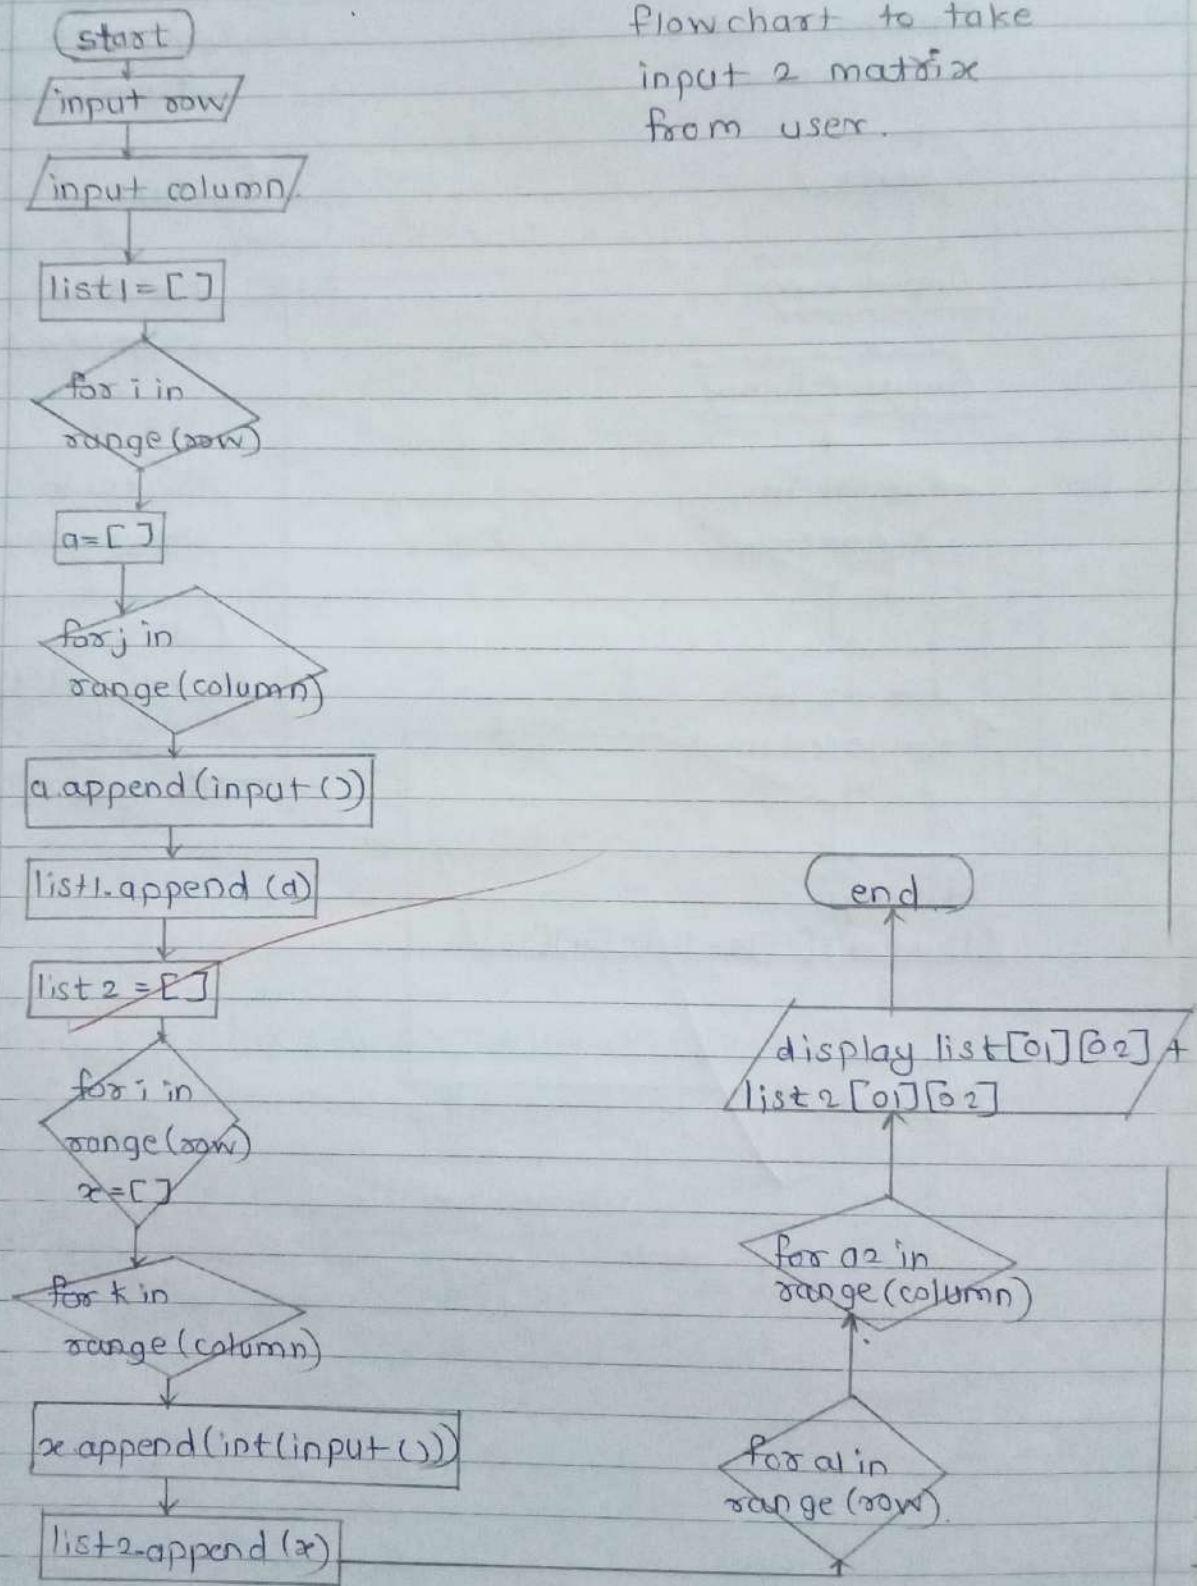 start
flowchart to take
input 2 matrix
from user.
input row
input column
list1=[ ]
for i in
range(row)
a=[ ]
for j in
range(column)
a.append(input())
list1.append(a)
list2=[ ]
for i in
range(row)
x=[ ]
for k in
range(column)
x.append(int(input()))
list2.append(x)
for a1 in
range(row)
for a2 in
range(column)
display list[a1][a2]+
list2[a1][a2]
end